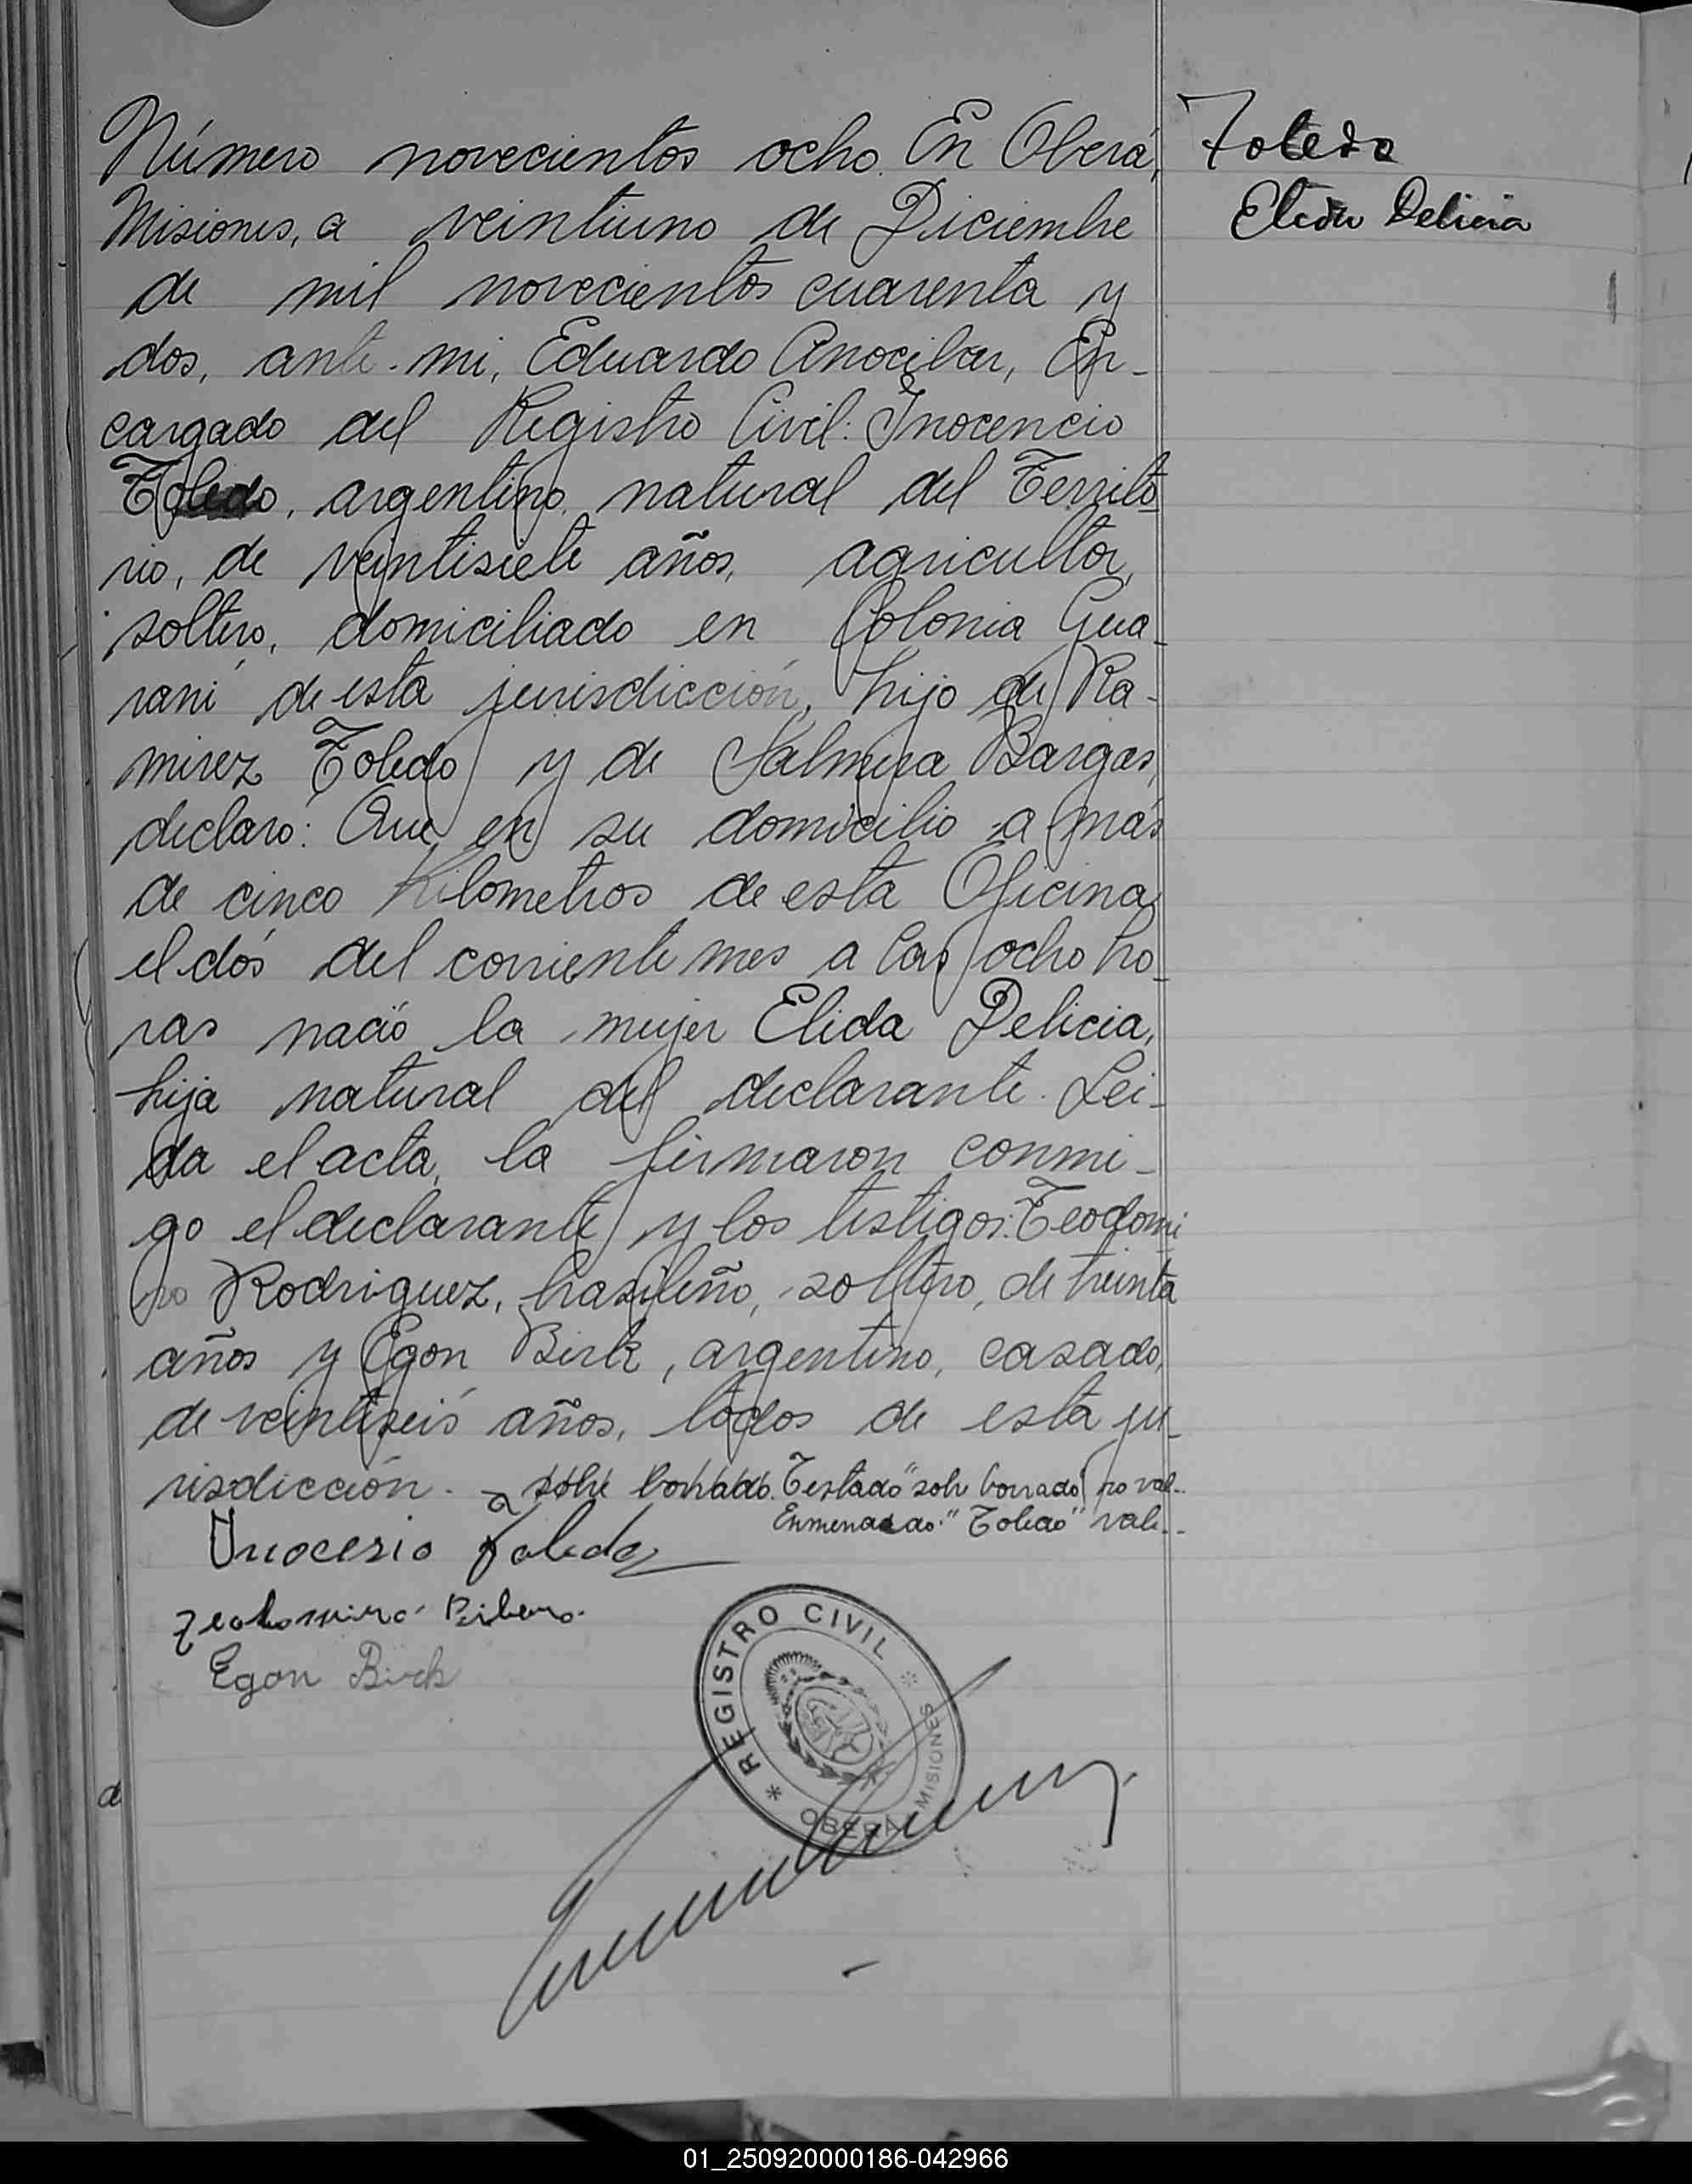 Número novecientos ocho. En Oberá,
Misiones, a veintiuno de Diciembre
de mil novecientos cuarenta y
dos, ante mi, Eduardo Anocibar, En-
cargado del Registro Civil: Inocencio
Toledo, argentino, natural del Territo
rio, de veintisiete años, agricultor,
soltero, domiciliado en Colonia Gua-
raní de esta jurisdicción, hijo de Ra-
mirez Toledo y de Salmira Bargas,
declaró: Que en su domicilio a más
de cinco Kilometros de esta Oficina
el dós del corriente mes a las ocho ho
ras nació la mujer Elida Delicia,
hija natural del declarante. Lei-
da el acta, la firmaron conmi-
go el declarante y los testigos: Teodomi
ro Rodriguez, brasileño, soltero, de treinta
años y Egon Birk, argentino, casado,
de veintiseis años, todos de esta ju-
risdicción. - sobre borrado. Testado "sobre borrado" no vale..
Enmendado: "Toledo" vale..
Toledo
Elida Delicia
Inocesio Toledo
Egon Birk
* REGISTRO CIVIL *
OBERÁ - MISIONES
d
01_250920000186-042966